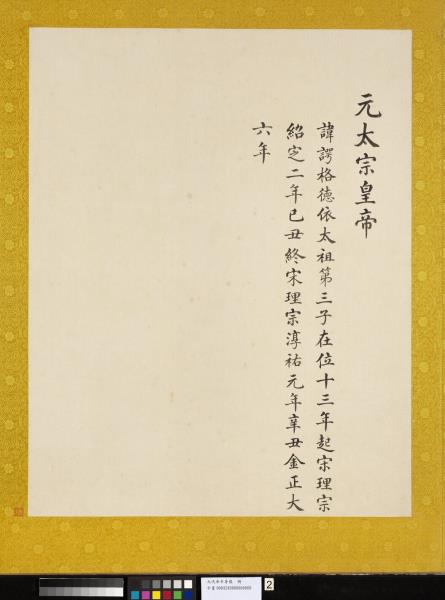 元太宗皇帝
諱諤格德依太祖第三子在位十三年起宋理宗
紹定二年已丑終宋理宗淳祐元年辛丑金正大
六年
2